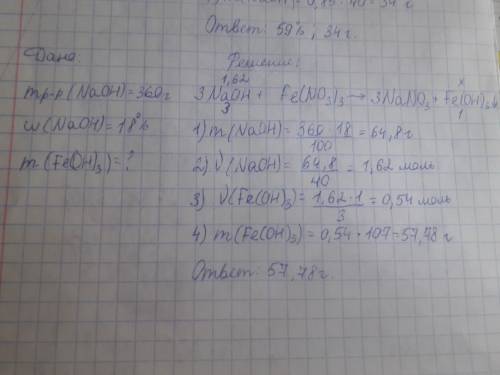 Ответ: 59%; 34 г.
Дано:
Решение:
mр-р(NaOH)=360 г
ω(NaOH)=18%
m(Fe(OH)3)=?
1,62 x
3NaOH + Fe(NO3)3 → 3NaNO3 + Fe(OH)3↓
3 1
1) m(NaOH)= 360·18/100 = 64,8 г
2) ν(NaOH)= 64,8/40 = 1,62 моль
3) ν(Fe(OH)3)= 1,62·1/3 = 0,54 моль
4) m(Fe(OH)3)=0,54·107=57,78 г
Ответ: 57,78 г.